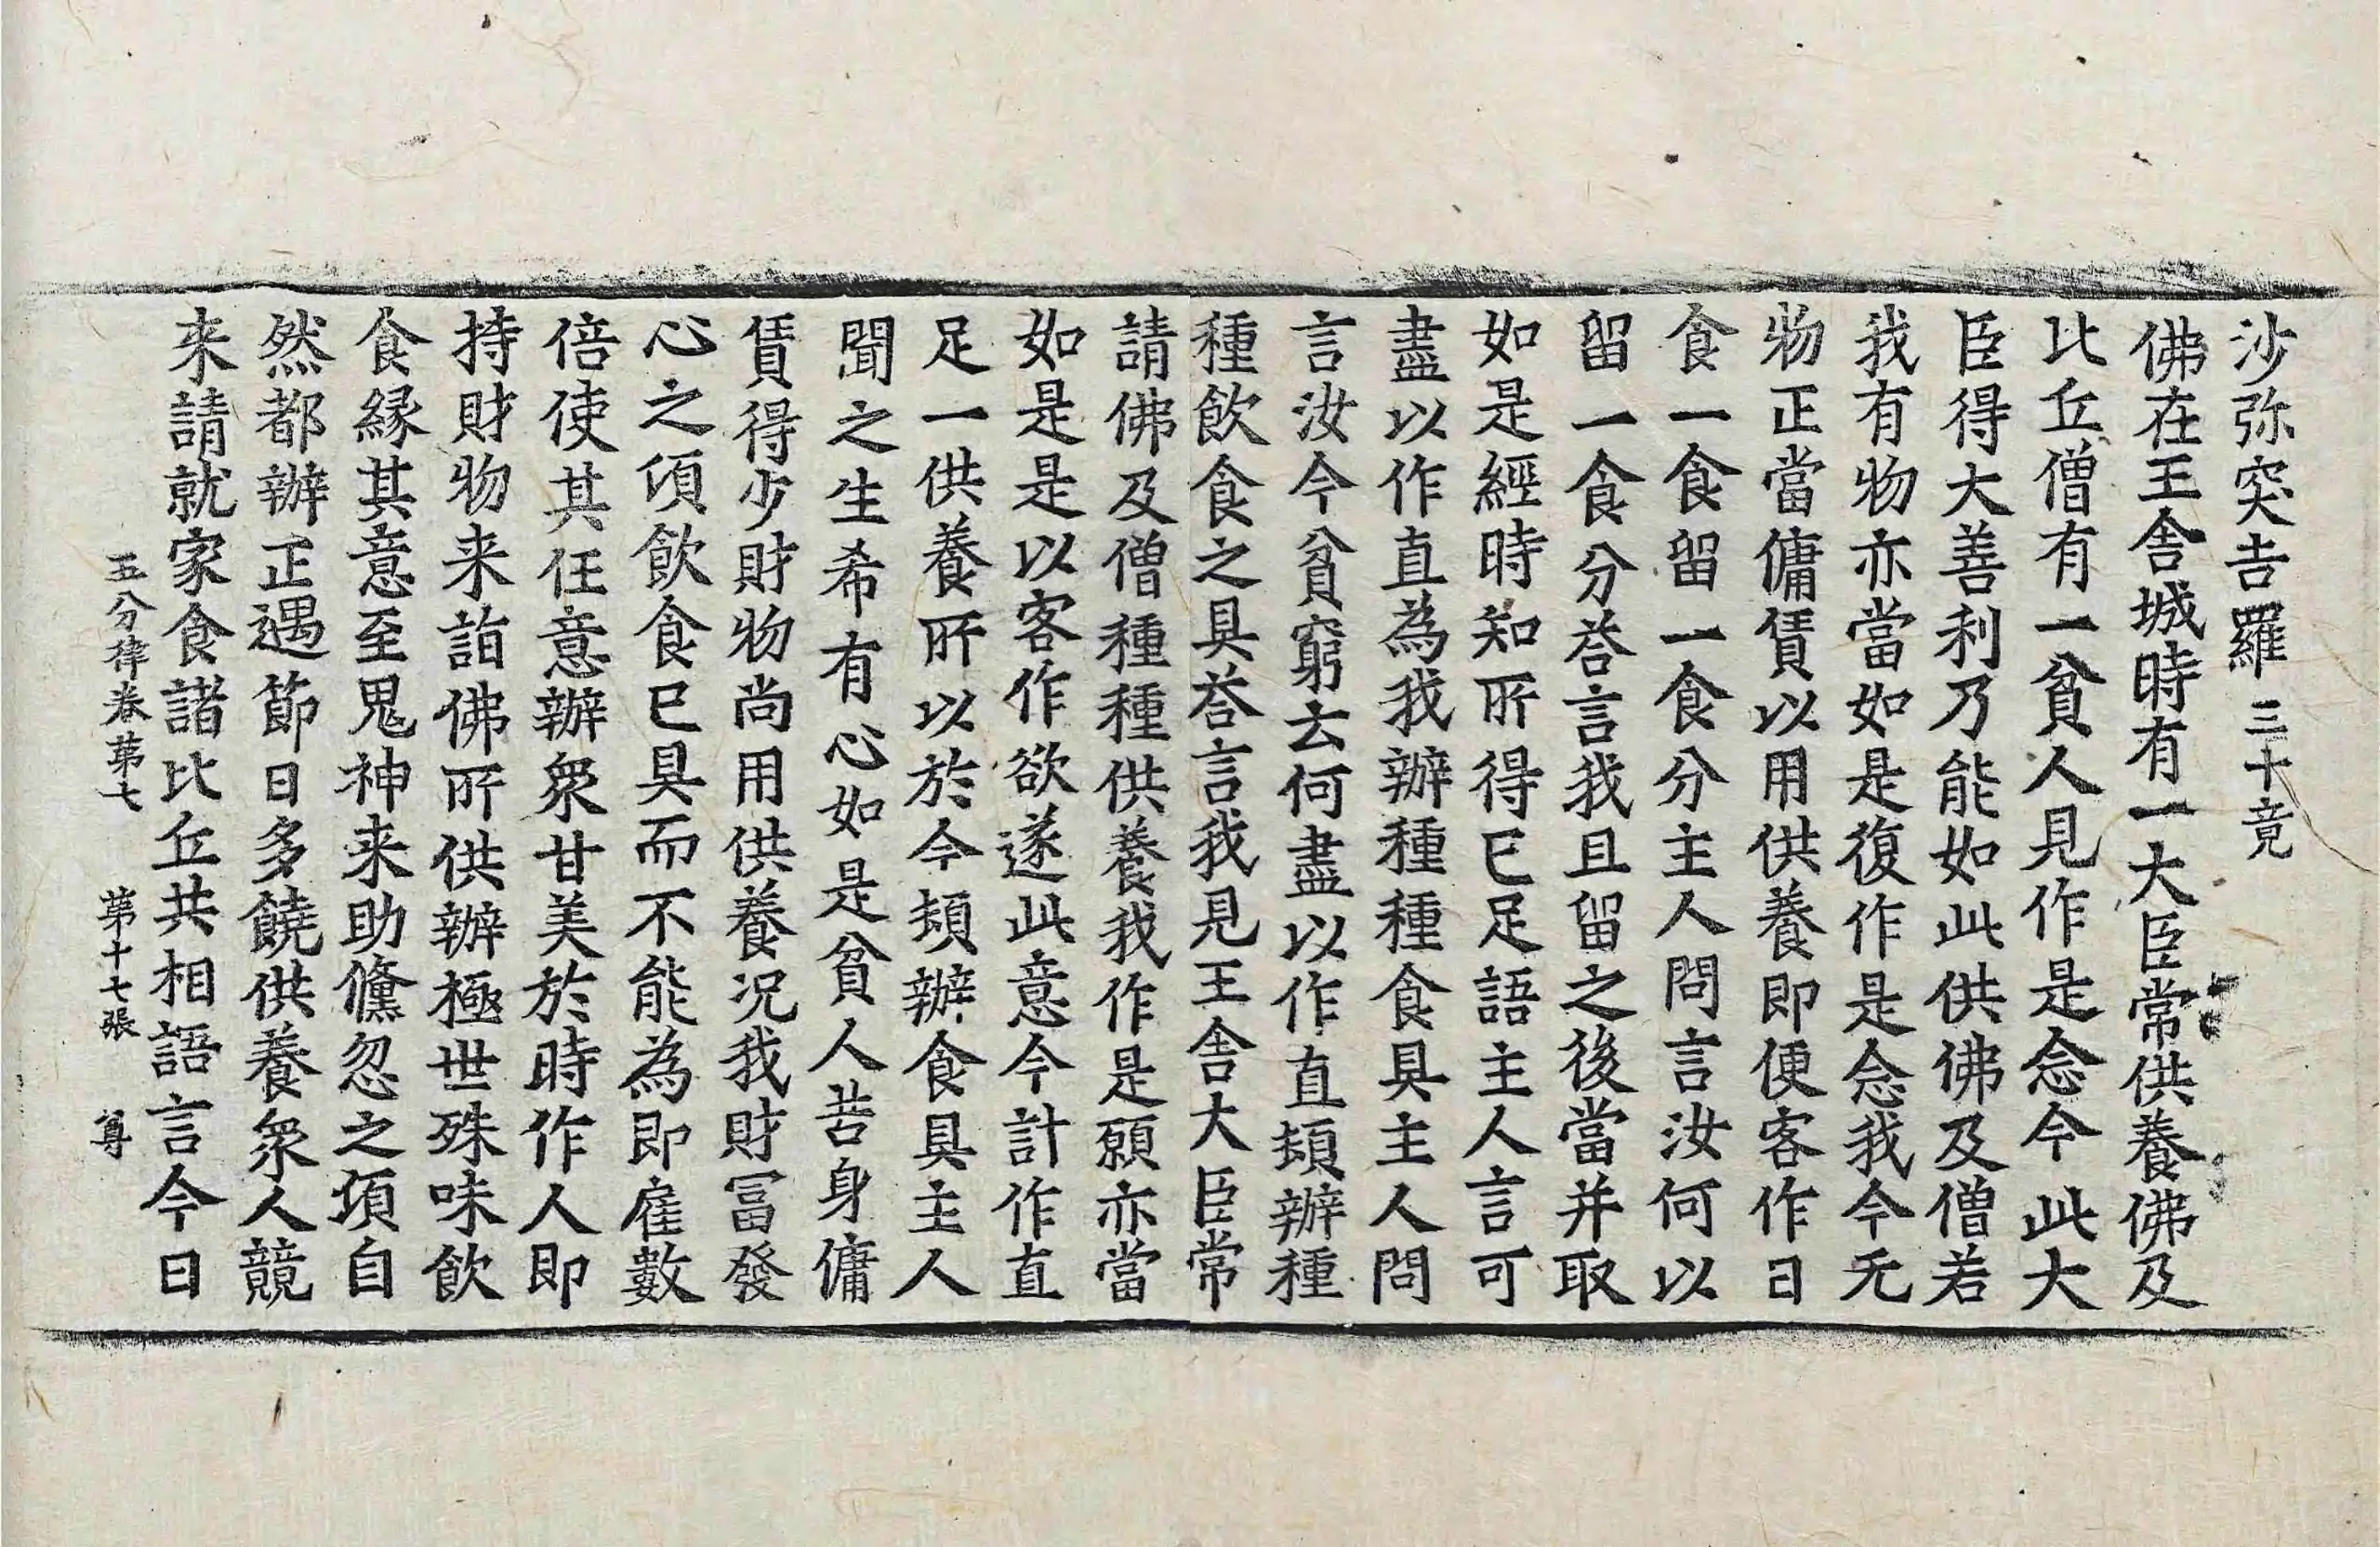 沙弥突吉羅 三十竟
佛在王舎城時有一大臣常供養佛及
比丘僧有一貧人見作是念今此大
臣得大善利乃能如此供佛及僧若
我有物亦當如是復作是念我今无
物正當傭賃以用供養即便客作日
食一食留一食分主人問言汝何以
留一食分荅言我且留之後當并取
如是經時知所得已足語主人言可
盡以作直為我辦種種食具主人問
言汝今貧窮去何盡以作直頓辦種
種飲食之具荅言我見王舎大臣常
請佛及僧種種供養我作是願亦當
如是是以客作欲遂此意今計作直
足一供養所以於今頓辦食具主人
聞之生希有心如是貧人苦身傭
賃得少財物尚用供養况我財冨發
心之湏飲食已具而不能為即雇數
倍使其任意辦衆甘美於時作人即
持財物来詣佛所供辦極世殊味飲
食縁其意至鬼神来助儵忽之湏自
然都辦正遇節日多饒供養衆人競
来請就家食諸比丘共相語言今日
五分律卷苐七 苐十七張 尊